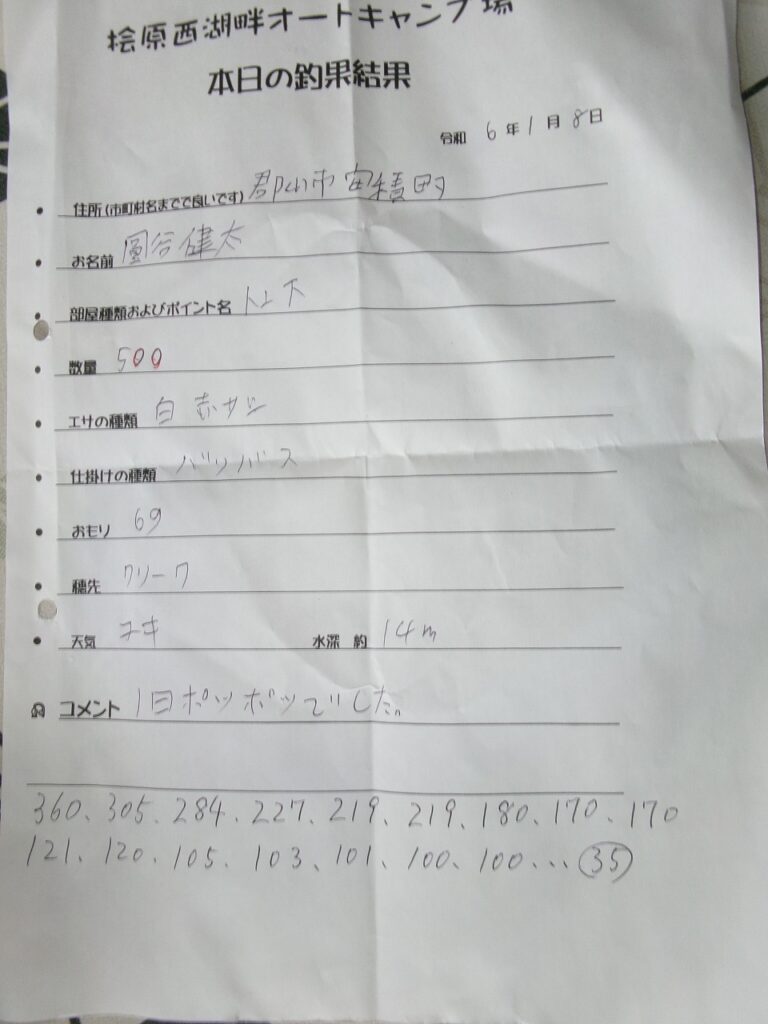 桧原西湖畔オートキャンプ場
本日の釣果結果
令和 6年1月8日
住所(市町村名までで良いです) 郡山市安積町
お名前 圓谷健太
部屋種類およびポイント名
数量 500
エサの種類 白 赤サシ
仕掛けの種類 バリバス
おもり 69
穂先 クリーク
天気 ユキ 水深 約 14m
コメント 1日ポツポツでした。
360、305、284、227、219、219、180、170、170
121、120、105、103、101、100、100…㉟